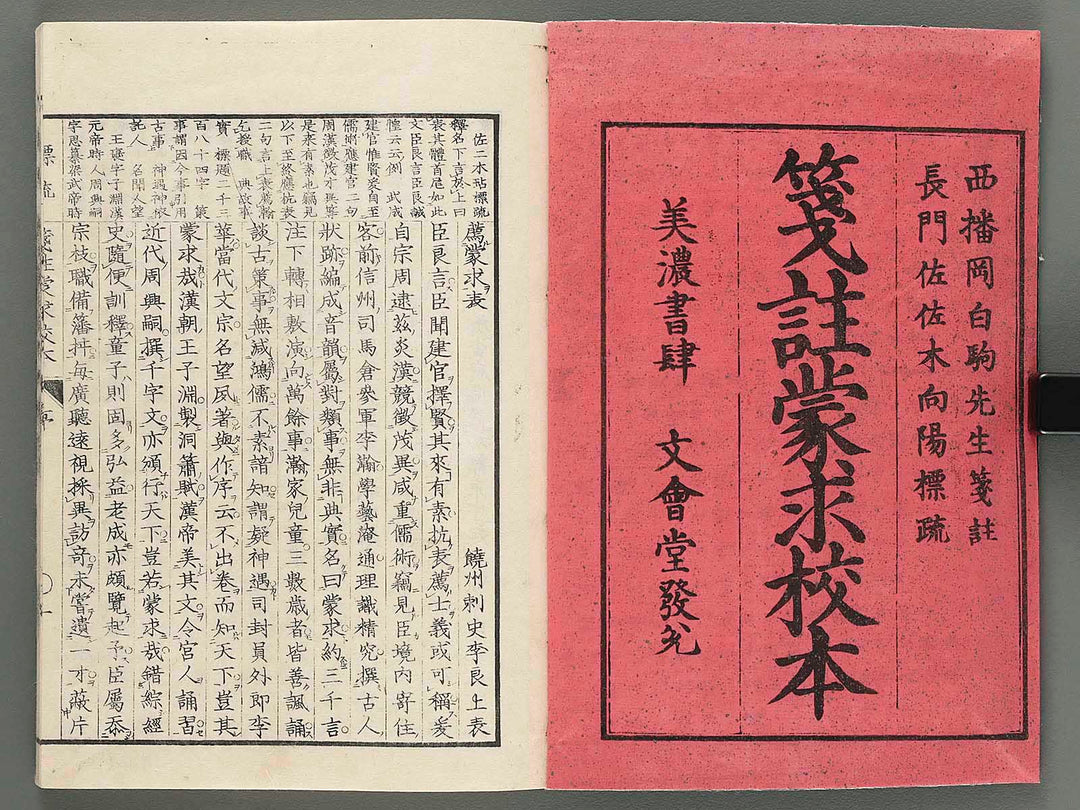 西播岡白駒先生箋註
長門佐佐木向陽標疏
箋註蒙求校本
美濃書肆 文會堂發兌
佐二木玷標疏
釋名下言於上曰
表其體首尾如此
文臣良言臣良誠
惶云云例 武成
建官惟賢爰自至
儒術應建官二句
周漢徵茂才異等
是來有素也竊見
以下至終應抗表
二句言上表薦瀚
乞授職 典故事
實 標題二千三
百八十四字 策
事謂因今事引用
古事 神遇神依
託人 名聞人望
王褒字子淵漢
元帝時人周興嗣
字思纂梁武帝時
薦蒙求表
饒州刺史李良上表
臣良言臣聞建官擇賢其來有素抗表薦士義或可稱爰
自宗周逮茲炎漢競徵茂異咸重儒術竊見臣境內寄住
客前信州司馬倉參軍李瀚學藝淹通理識精究撰古人
狀跡編成音韻屬對類事無非典實名曰蒙求約三千言
注下轉相敷演向萬餘事瀚家兒童三數歲者皆善諷誦
談古策事無減鴻儒不素諳知謂疑神遇司封員外郎李
華當代文宗名望夙著與作序云不出卷而知天下豈其
蒙求哉漢朝王子淵製洞簫賦漢帝美其文令宮人誦習
近代周興嗣撰千字文亦頒行天下豈若蒙求哉錯綜經
史隨便訓釋童子則固多弘益老成亦頗覽起予臣屬忝
宗枝職備藩扞每廣聽遠視採異訪奇未嘗遺一才蔽片